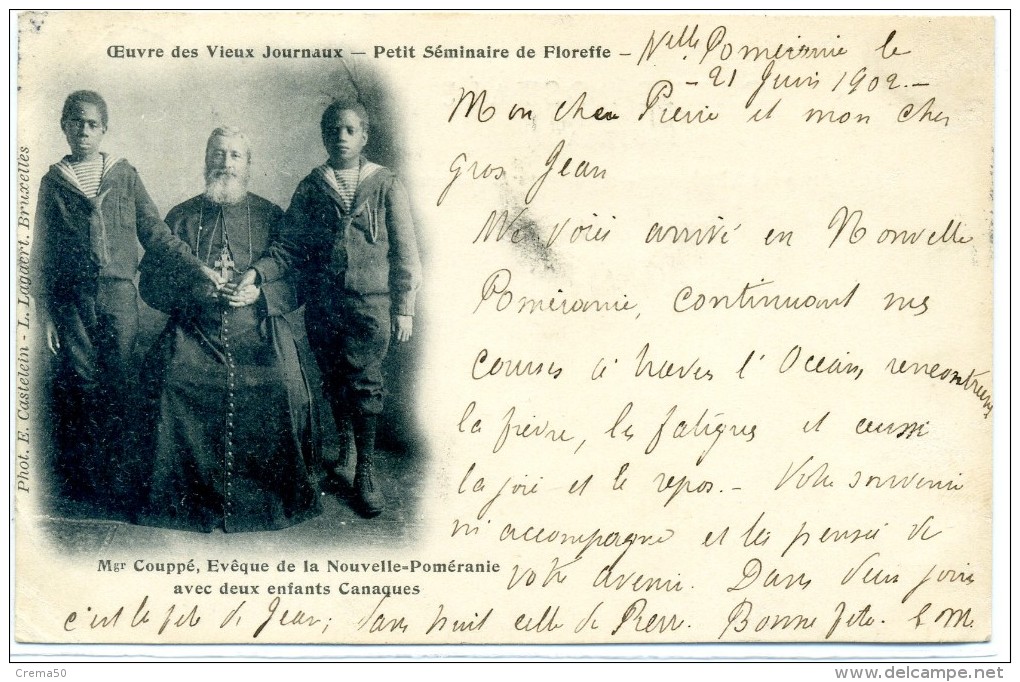 Œuvre des Vieux Journaux — Petit Séminaire de Floreffe -
Nelle Poméranie le
- 21 Juin 1902 -
Mon cher Pierre et mon cher
gros Jean
Me voici arrivé en Nouvelle
Poméranie, continuant mes
courses à travers l'Océan, rencontrant
la fièvre, les fatigues et aussi
la joie et le repos. - Votre souvenir
m'accompagne et la pensée de
votre avenir. Dans deux jours
c'est la fête de Jean; dans huit celle de Pierre. Bonne fête.
Phot. E. Castelein - L. Lagaert, Bruxelles
Mgr Couppé, Evêque de la Nouvelle=Poméranie
avec deux enfants Canaques
Crema50
www.delcampe.net